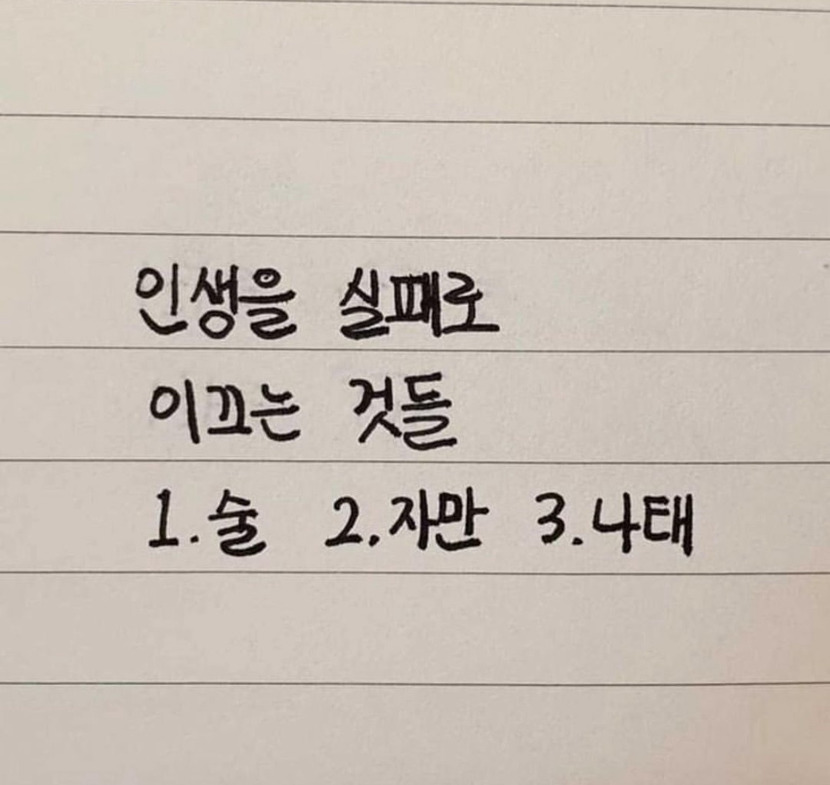 인생을 실패로
이끄는 것들
1.술 2.자만 3.나태